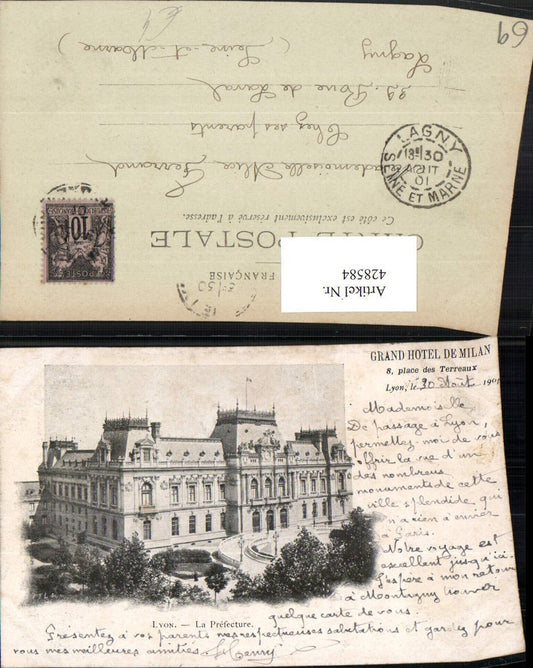 69
Mademoiselle Alice Ferrand
Chez ses parents
39 Rue de Laval
Lagny
(Seine-et-Marne)
CARTE POSTALE
Ce côté est exclusivement réservé à l'adresse.
FRANÇAISE
LAGNY
18E 30
AOUT
01
SEINE ET MARNE
10
POSTES
Artikel Nr.
428584
GRAND HOTEL DE MILAN
8, place des Terreaux
Lyon, le 30 Août 1901
Mademoiselle
De passage à Lyon,
permettez moi de vous
offrir la vue d'un
des nombreux
monuments de cette
ville splendide, qui
n'a rien à envier
à Paris.
Notre voyage est
excellent jusqu'ici.
J'espère à mon retour
à Montigny trouver
quelque carte de vous.
Présentez à vos parents mes respectueuses salutations et gardez pour
vous mes meilleures amitiés. Henry
LYON. — La Préfecture.